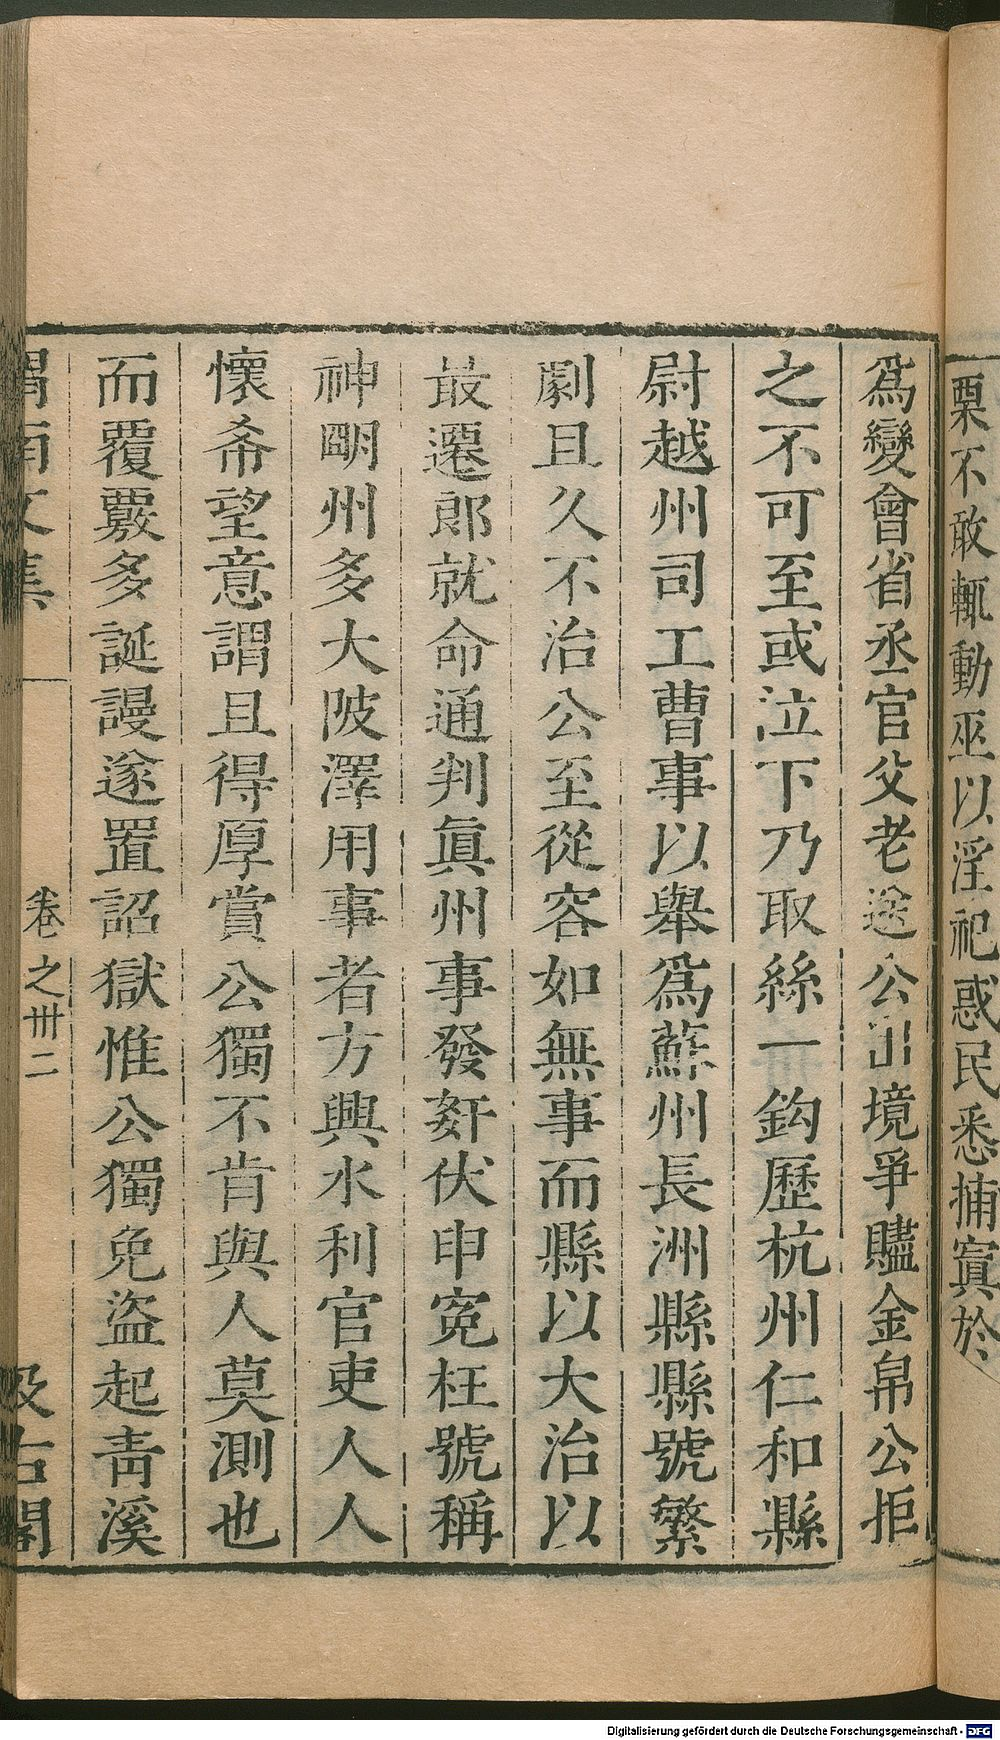 栗不敢輒動巫以淫祀惑民悉捕寘於
爲變會省丞官父老送公出境爭贐金帛公拒
之不可至或泣下乃取絲一鈎歷杭州仁和縣
尉越州司工曹事以舉爲蘇州長洲縣縣號繁
劇且久不治公至從容如無事而縣以大治以
最遷郎就命通判眞州事發姦伏申寃枉號稱
神明州多大陂澤用事者方興水利官吏人人
懷希望意謂且得厚賞公獨不肯與人莫測也
而覆覈多誕謾遂置詔獄惟公獨免盜起靑溪
渭南文集 卷之卅二 汲古閣
Digitalisierung gefördert durch die Deutsche Forschungsgemeinschaft - DFG